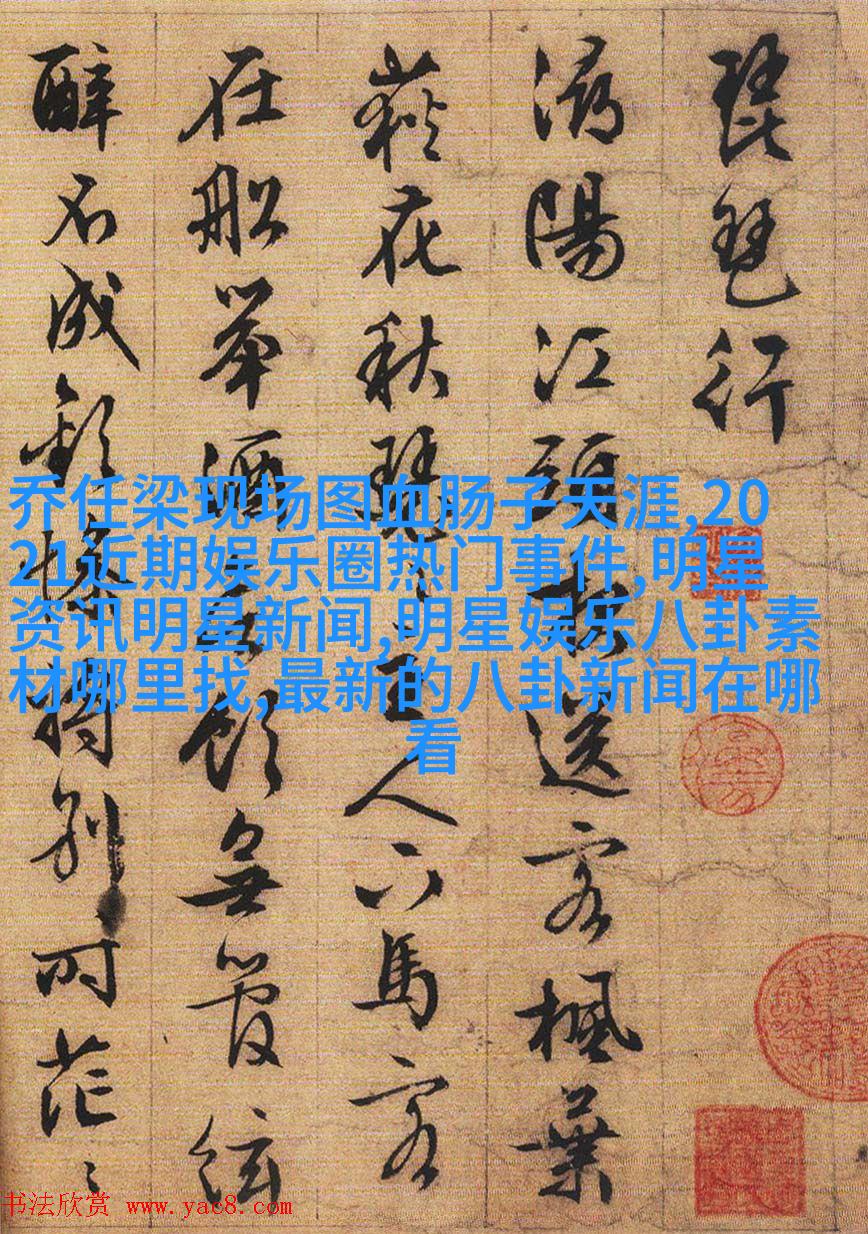 琵琶行
潯陽江頭夜送客楓葉
荻花秋瑟〻主人下馬客
在船举酒欲飲無管絃
醉不成歡惨将別时茫〻
乔任梁现场图血肠子天涯,20
21近期娱乐圈热门事件,明星
资讯明星新闻,明星娱乐八卦素
材哪里找,最新的八卦新闻在哪
看
书法欣赏 www.yac8.com